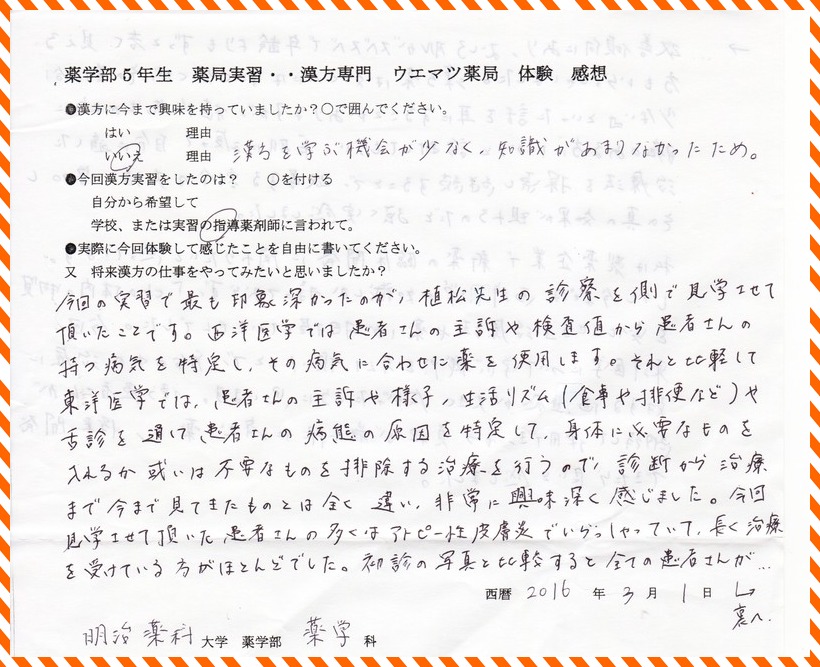 薬学部5年生　薬局実習・・漢方専門　ウエマツ薬局　体験　感想
●漢方に今まで興味を持っていましたか？〇で囲んでください。
はい　　理由
いいえ　　理由　漢方を学ぶ機会が少なく、知識があまりなかったため。
●今回漢方実習をしたのは？　〇を付ける
自分から希望して
学校、または実習の指導薬剤師に言われて。
●実際に今回体験して感じたことを自由に書いてください。
又　将来漢方の仕事をやってみたいと思いましたか？
今回の実習で最も印象深かったのが、植松先生の診察を側で見学させて
頂いたことです。西洋医学では患者さんの主訴や検査値から患者さんの
持つ病気を特定し、その病気に合わせた薬を使用します。それと比較して
東洋医学では、患者さんの主訴や様子、生活リズム(食事や排便など)や
舌診を通して患者さんの病態の原因を特定して、身体に必要なものを
入れるか或いは不要なものを排除する治療を行うので、診断から治療
まで今まで見てきたものとは全く違い、非常に興味深く感じました。今回
見学させて頂いた患者さんの多くはアトピー性皮膚炎でいらっしゃっていて、長く治療
を受けている方がほとんどでした。初診の写真と比較すると全ての患者さんが…
西暦　2016　年　3　月　1　日　↳
裏へ.
明治薬科大学　薬学部　薬学科